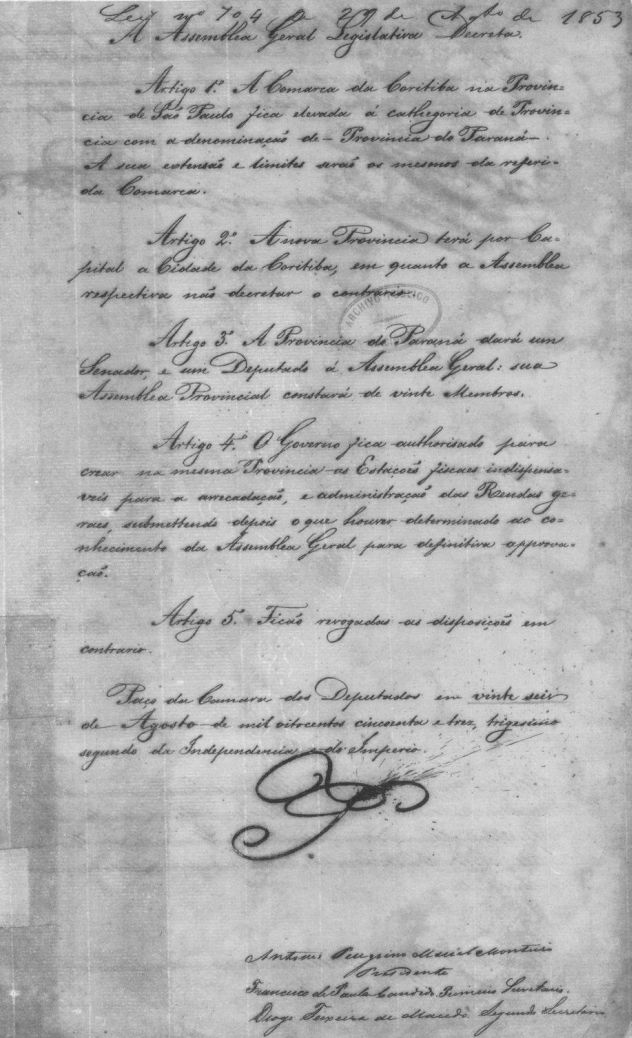 Lei nº 704 de 29 de Agto de 1853
A Assemblea Geral Legislativa Decreta.
Artigo 1º. A Comarca da Coritiba na Provin-
cia de São Paulo fica elevada á cathegoria de Provin-
cia com a denominação de - Provincia do Paraná -.
A sua extensão e limites serão os mesmos da referi-
da Comarca.
Artigo 2º. A nova Provincia terá por Ca-
pital a Cidade da Coritiba, em quanto a Assemblea
respectiva não decretar o contrario.
ARCHIVO PUBLICO
Artigo 3º. A Provincia do Paraná dará um
Senador, e um Deputado á Assemblea Geral: sua
Assemblea Provincial constará de vinte Membros.
Artigo 4º. O Governo fica authorisado para
crear na mesma Provincia as Estacões fiscaes indispensa-
veis para a arrecadação, e administração das Rendas ge-
raes, submettendo depois o que houver determinado ao co-
nhecimento da Assemblea Geral para definitiva approva-
ção.
Artigo 5º. Ficão revogadas as disposições em
contrario.
Paço da Camara dos Deputados em vinte seis
de Agosto de mil oitocentos cincoenta e trez, trigesimo
segundo da Independencia e do Imperio.
Antonio Peregrino Maciel Monteiro
Presidente
Francisco de Paula Candido Primeiro Secretario.
Diogo Teixeira de Macedo Segundo Secretario